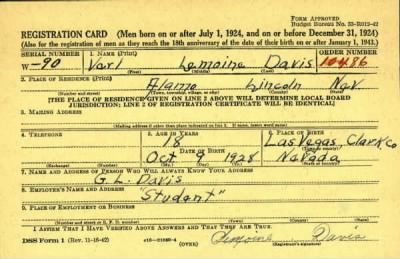 FORM APPROVED
Budget Bureau No. 33-R012-42
REGISTRATION CARD (Men born on or after July 1, 1924, and on or before December 31, 1924)
(Also for the registration of men as they reach the 18th anniversary of the date of their birth on or after January 1, 1943.)
SERIAL NUMBER
1. NAME (Print)
ORDER NUMBER
W -90
Varl Lemoine Davis
10486
(First) (Middle) (Last)
2. PLACE OF RESIDENCE (Print)
Alamo Lincoln Nev.
(Number and street) (Town, township, village, or city) (County) (State)
[THE PLACE OF RESIDENCE GIVEN ON LINE 2 ABOVE WILL DETERMINE LOCAL BOARD
JURISDICTION; LINE 2 OF REGISTRATION CERTIFICATE WILL BE IDENTICAL]
3. MAILING ADDRESS
[Mailing address if other than place indicated on line 2. If same, insert word same]
4. TELEPHONE
5. AGE IN YEARS
6. PLACE OF BIRTH
18
Las Vegas Clark Co
DATE OF BIRTH
(Town or county)
Oct 9 1928
Nevada
(Exchange) (Number) (Mo.) (Day) (Yr.) (State or country)
7. NAME AND ADDRESS OF PERSON WHO WILL ALWAYS KNOW YOUR ADDRESS
G. L. Davis
8. EMPLOYER'S NAME AND ADDRESS
"Student"
9. PLACE OF EMPLOYMENT OR BUSINESS
(Number and street or R. F. D. number) (Town) (County) (State)
I AFFIRM THAT I HAVE VERIFIED ABOVE ANSWERS AND THAT THEY ARE TRUE.
DSS Form 1 (Rev. 11-16-42) (OVER)
Lemoine Davis
(Registrant's signature)